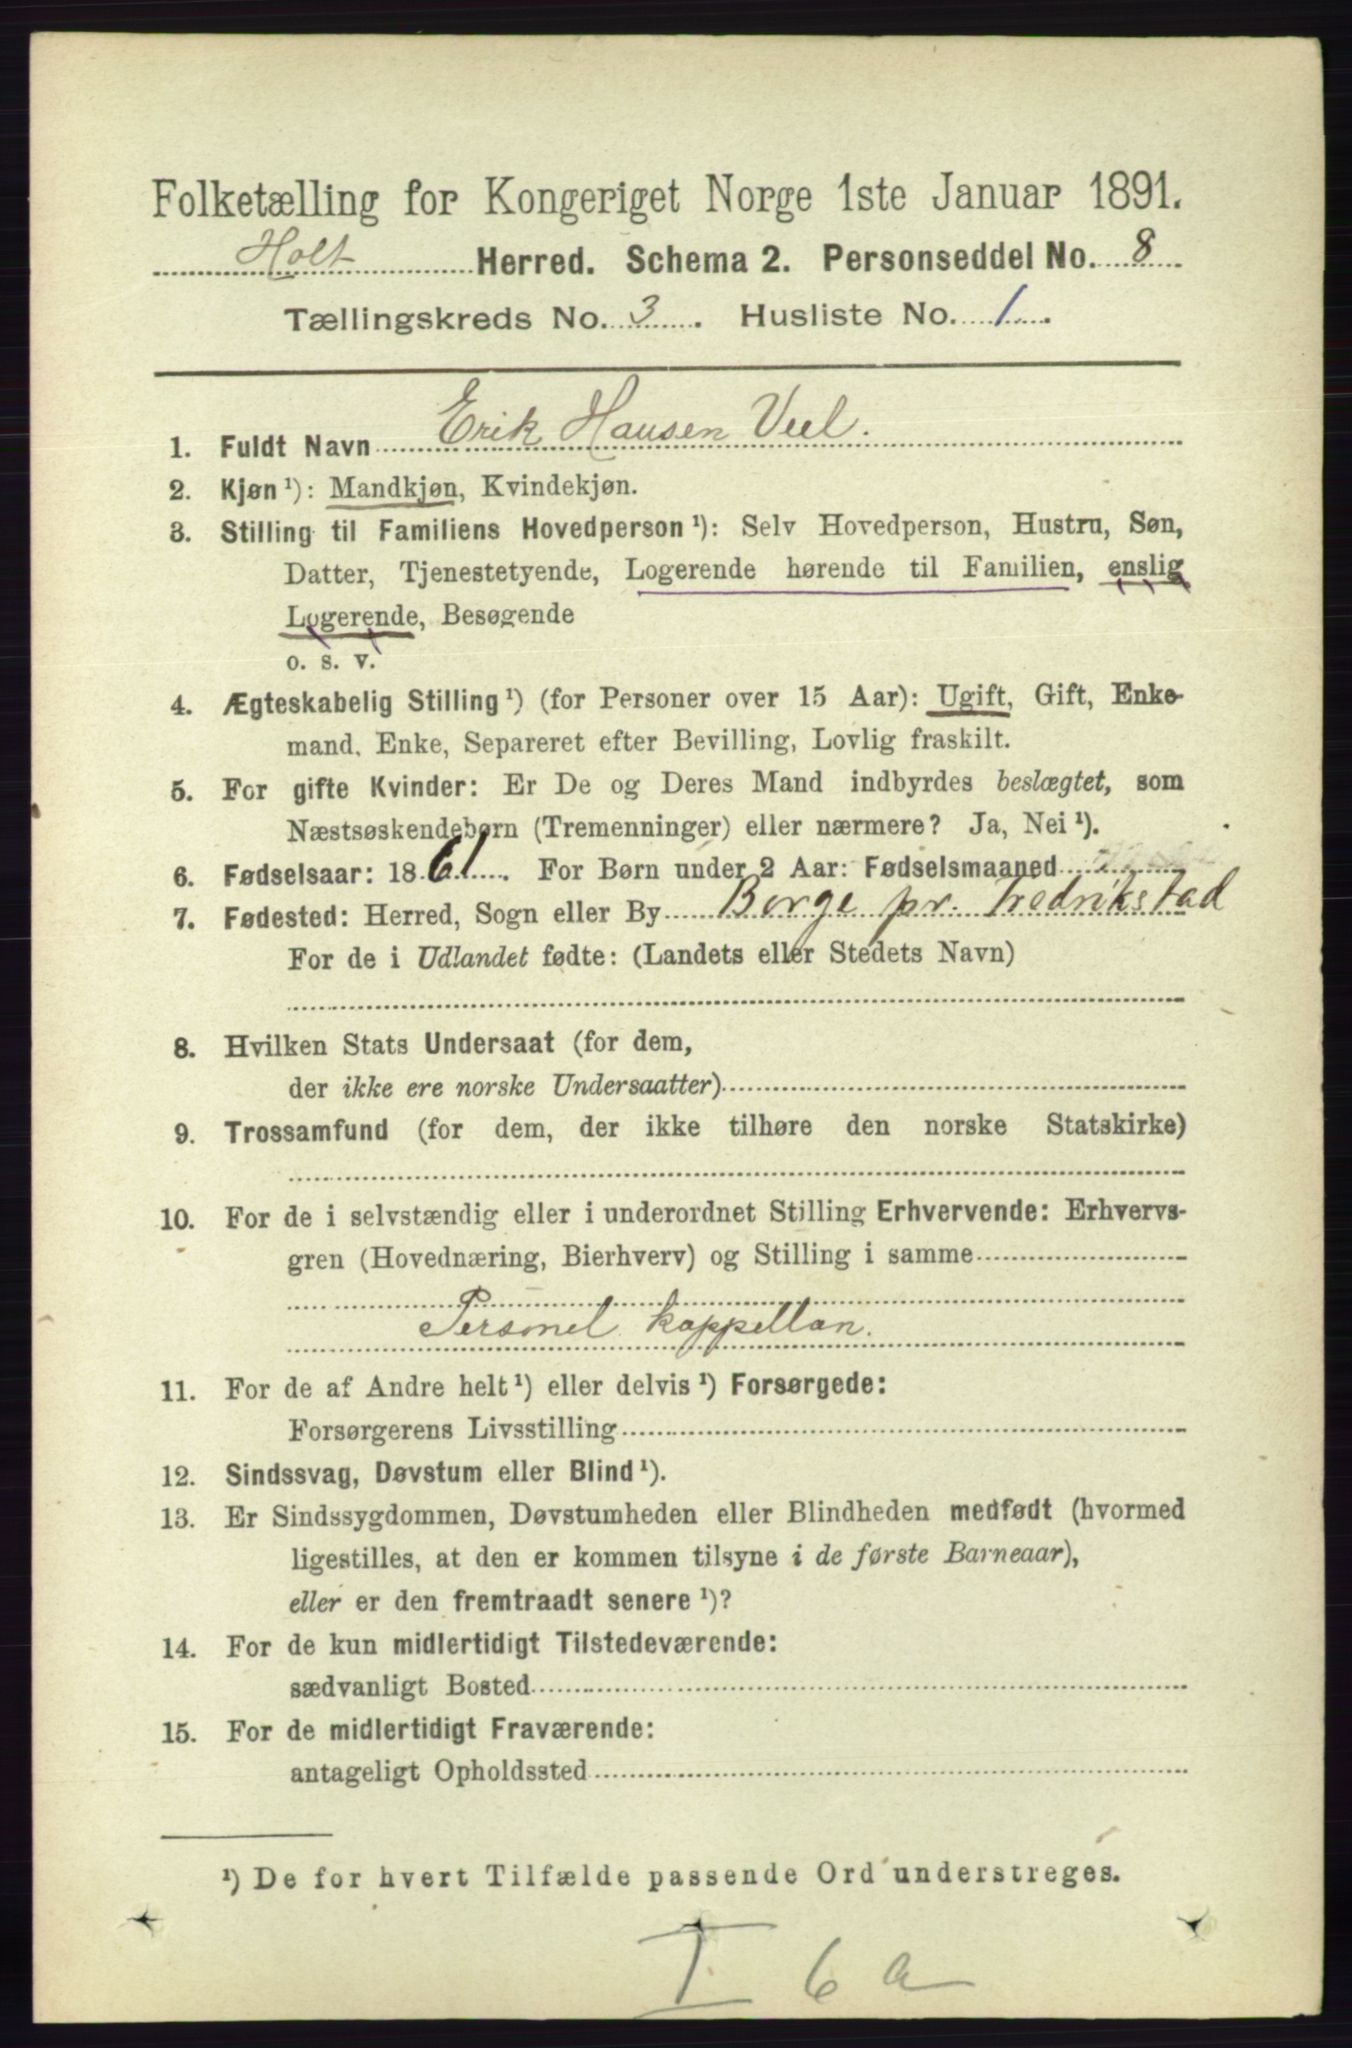 Folketælling for Kongeriget Norge 1ste Januar 1891.
Holt Herred. Schema 2. Personseddel No. 8
Tællingskreds No. 3. Husliste No. 1.
1. Fuldt Navn Erik Hansen Veel.
2. Kjøn¹): Mandkjøn, Kvindekjøn.
3. Stilling til Familiens Hovedperson¹): Selv Hovedperson, Hustru, Søn,
Datter, Tjenestetyende, Logerende hørende til Familien, enslig
Logerende, Besøgende
o. s. v.
4. Ægteskabelig Stilling¹) (for Personer over 15 Aar): Ugift, Gift, Enke-
mand, Enke, Separeret efter Bevilling, Lovlig fraskilt.
5. For gifte Kvinder: Er De og Deres Mand indbyrdes beslægtet, som
Næstsøskendebørn (Tremenninger) eller nærmere? Ja, Nei¹).
6. Fødselsaar: 1861. For Børn under 2 Aar: Fødselsmaaned
7. Fødested: Herred, Sogn eller By Borge pr. Fredrikstad
For de i Udlandet fødte: (Landets eller Stedets Navn)
8. Hvilken Stats Undersaat (for dem,
der ikke ere norske Undersaatter)
9. Trossamfund (for dem, der ikke tilhøre den norske Statskirke)
10. For de i selvstændig eller i underordnet Stilling Erhvervende: Erhvervs-
gren (Hovednæring, Bierhverv) og Stilling i samme
Personel kappellan.
11. For de af Andre helt¹) eller delvis¹) Forsørgede:
Forsørgerens Livsstilling
12. Sindssvag, Døvstum eller Blind¹).
13. Er Sindssygdommen, Døvstumheden eller Blindheden medfødt (hvormed
ligestilles, at den er kommen tilsyne i de første Barneaar),
eller er den fremtraadt senere¹)?
14. For de kun midlertidigt Tilstedeværende:
sædvanligt Bosted
15. For de midlertidigt Fraværende:
antageligt Opholdssted
¹) De for hvert Tilfælde passende Ord understreges.
I 6 a